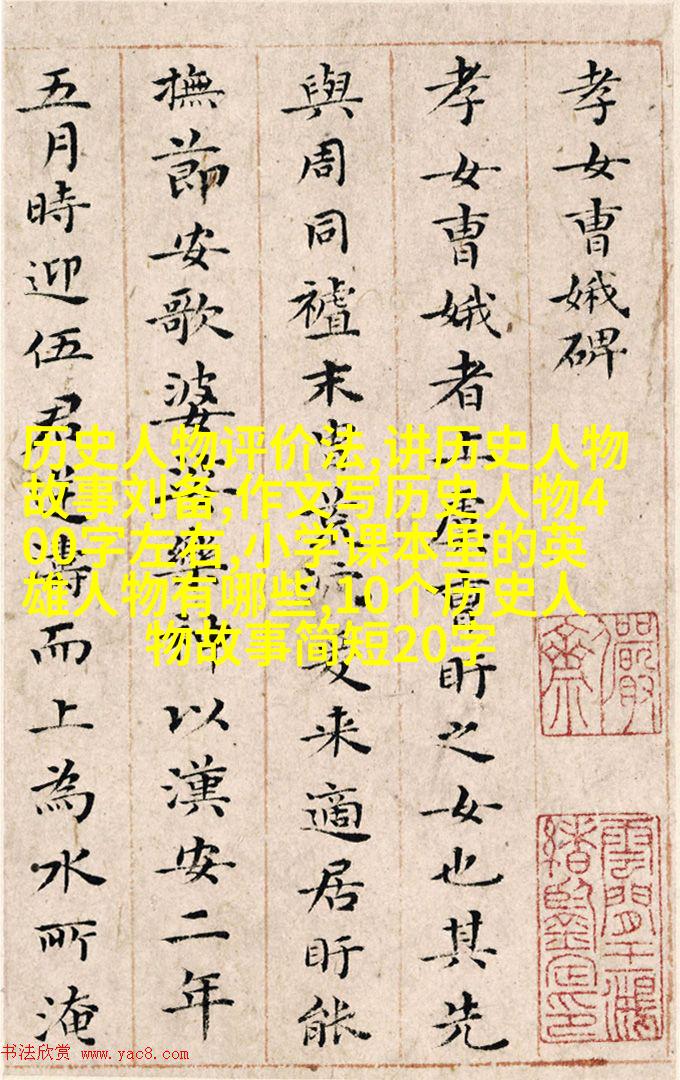 孝女曹娥碑
孝女曹娥者上虞曹盱之女也其先
與周同末胄荒来適居盱能
撫節安歌婆娑樂神以漢安二年
五月時迎伍君逆濤而上為水所淹
历史人物评价法,讲历史人物
故事刘备,作文写历史人物4
00字左右,小学课本里的英
雄人物有哪些,10个历史人
物故事简短20字
书法欣赏 www.yac8.com